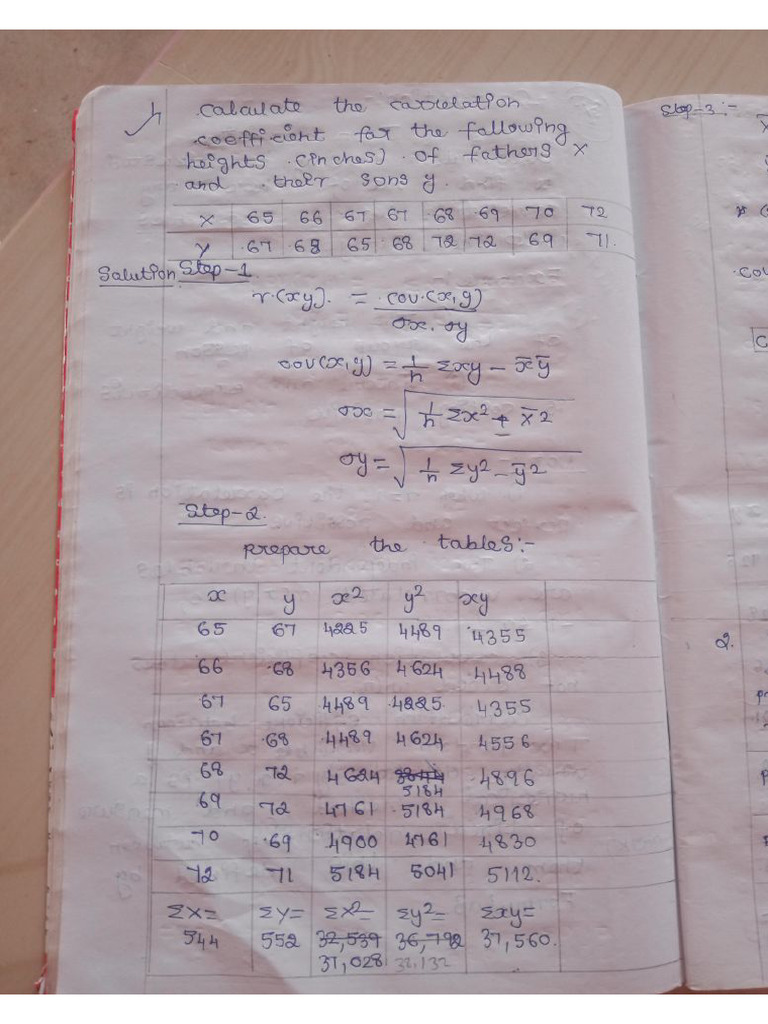 1. Calculate the correlation
coefficient for the following
heights (inches) of fathers x
and their sons y.
x 65 66 67 67 68 69 70 72
y 67 68 65 68 72 72 69 71.
Solution Step-1.
r(xy). = cov(x,y)
σx. σy
cov(x,y) = 1/n Σxy - x̄ȳ
σx = √1/n Σx² + x̄2
σy = √1/n Σy² - ȳ2
Step-2.
prepare the tables:-
x y x² y² xy
65 67 4225 4489 4355
66 68 4356 4624 4488
67 65 4489 4225 4355
67 68 4489 4624 4556
68 72 4624 5184 4896
69 72 4761 5184 4968
70 69 4900 4761 4830
72 71 5184 5041 5112.
ΣX= ΣY= ΣX²= Σy²= Σxy=
544 552 32,539 36,792 37,560.
37,028 38,132
Step-3:-
2.